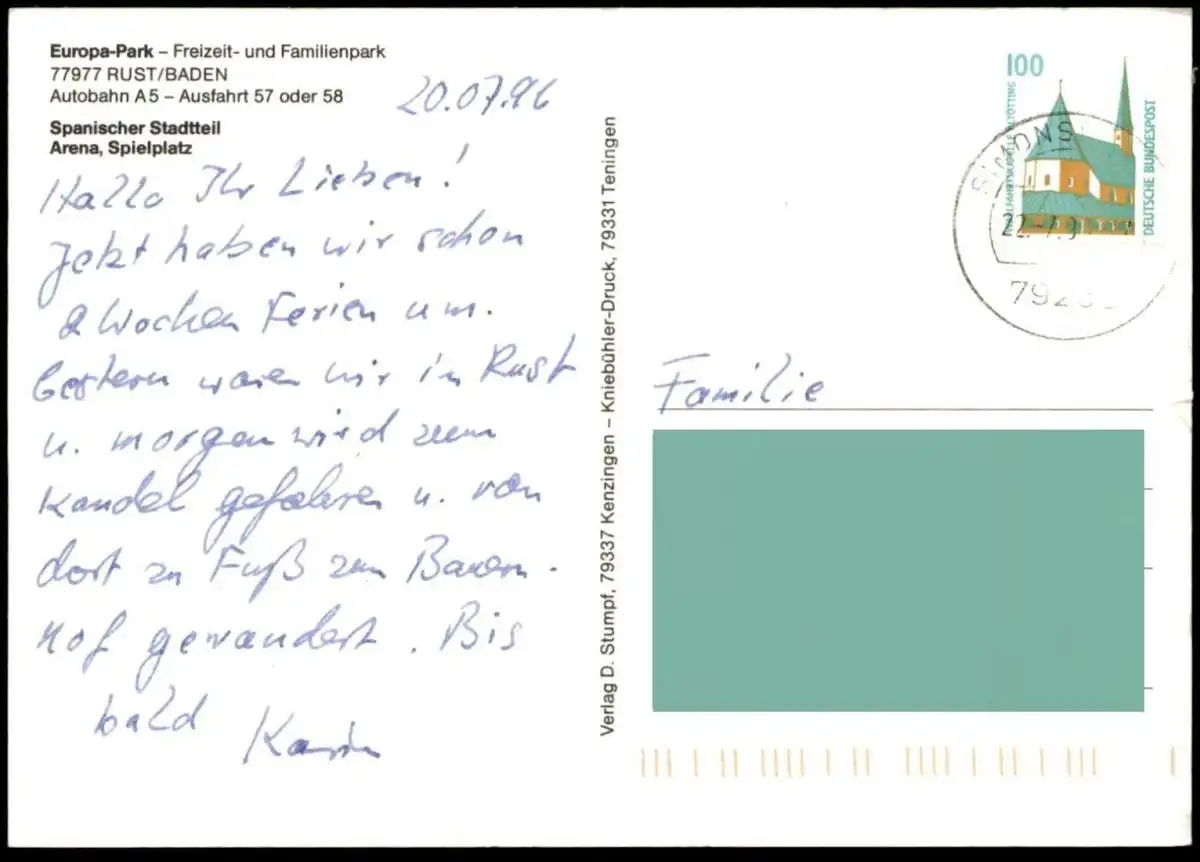 Europa-Park – Freizeit- und Familienpark
77977 RUST/BADEN
Autobahn A5 – Ausfahrt 57 oder 58
Spanischer Stadtteil
Arena, Spielplatz
20.07.96
Hallo Ihr Lieben!
Jetzt haben wir schon
2 Wochen Ferien um.
Gestern waren wir in Rust
u. morgen wird zum
Kandel gefahren u. von
dort zu Fuß zum Bauern-
hof gewandert. Bis
bald Karin
Verlag D. Stumpf, 79337 Kenzingen – Kniebühler-Druck, 79331 Teningen
100
WALLFAHRTSKAPELLE ALTÖTTING
DEUTSCHE BUNDESPOST
SIMONS
Familie